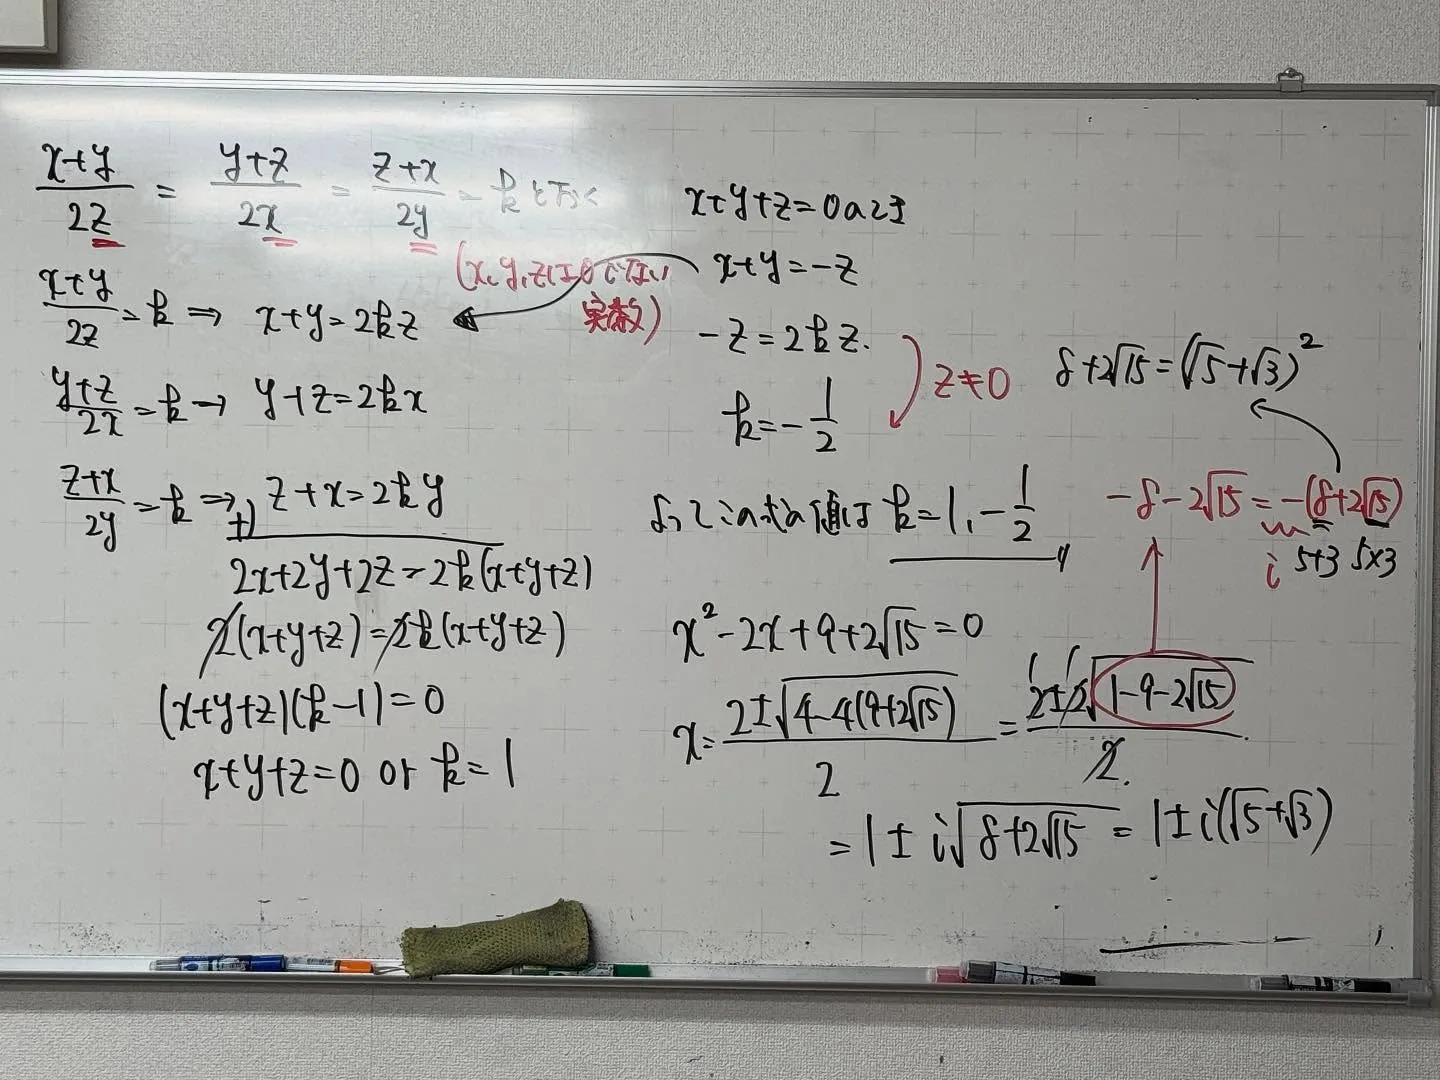 x+y/2z = y+z/2x = z+x/2y = k とおく
(x, y, zは0でない
実数)
x+y/2z = k ⇒ x+y=2kz
y+z/2x = k → y+z=2kx
z+x/2y = k ⇒ +) z+x=2ky
2x+2y+2z=2k(x+y+z)
2(x+y+z)=2k(x+y+z)
(x+y+z)(k-1)=0
x+y+z=0 or k=1
x+y+z=0のとき
x+y=-z
-z=2kz.
z≠0
k=-1/2
よってこの式の値は k=1, -1/2
8+2√15=(√5+√3)²
-8-2√15=-(8+2√15)
i 5+3 5×3
x²-2x+9+2√15=0
x= 2±√4-4(9+2√15)/2 = 2±2√1-9-2√15/2.
1 1
=1±i√8+2√15 = 1±i(√5+√3)